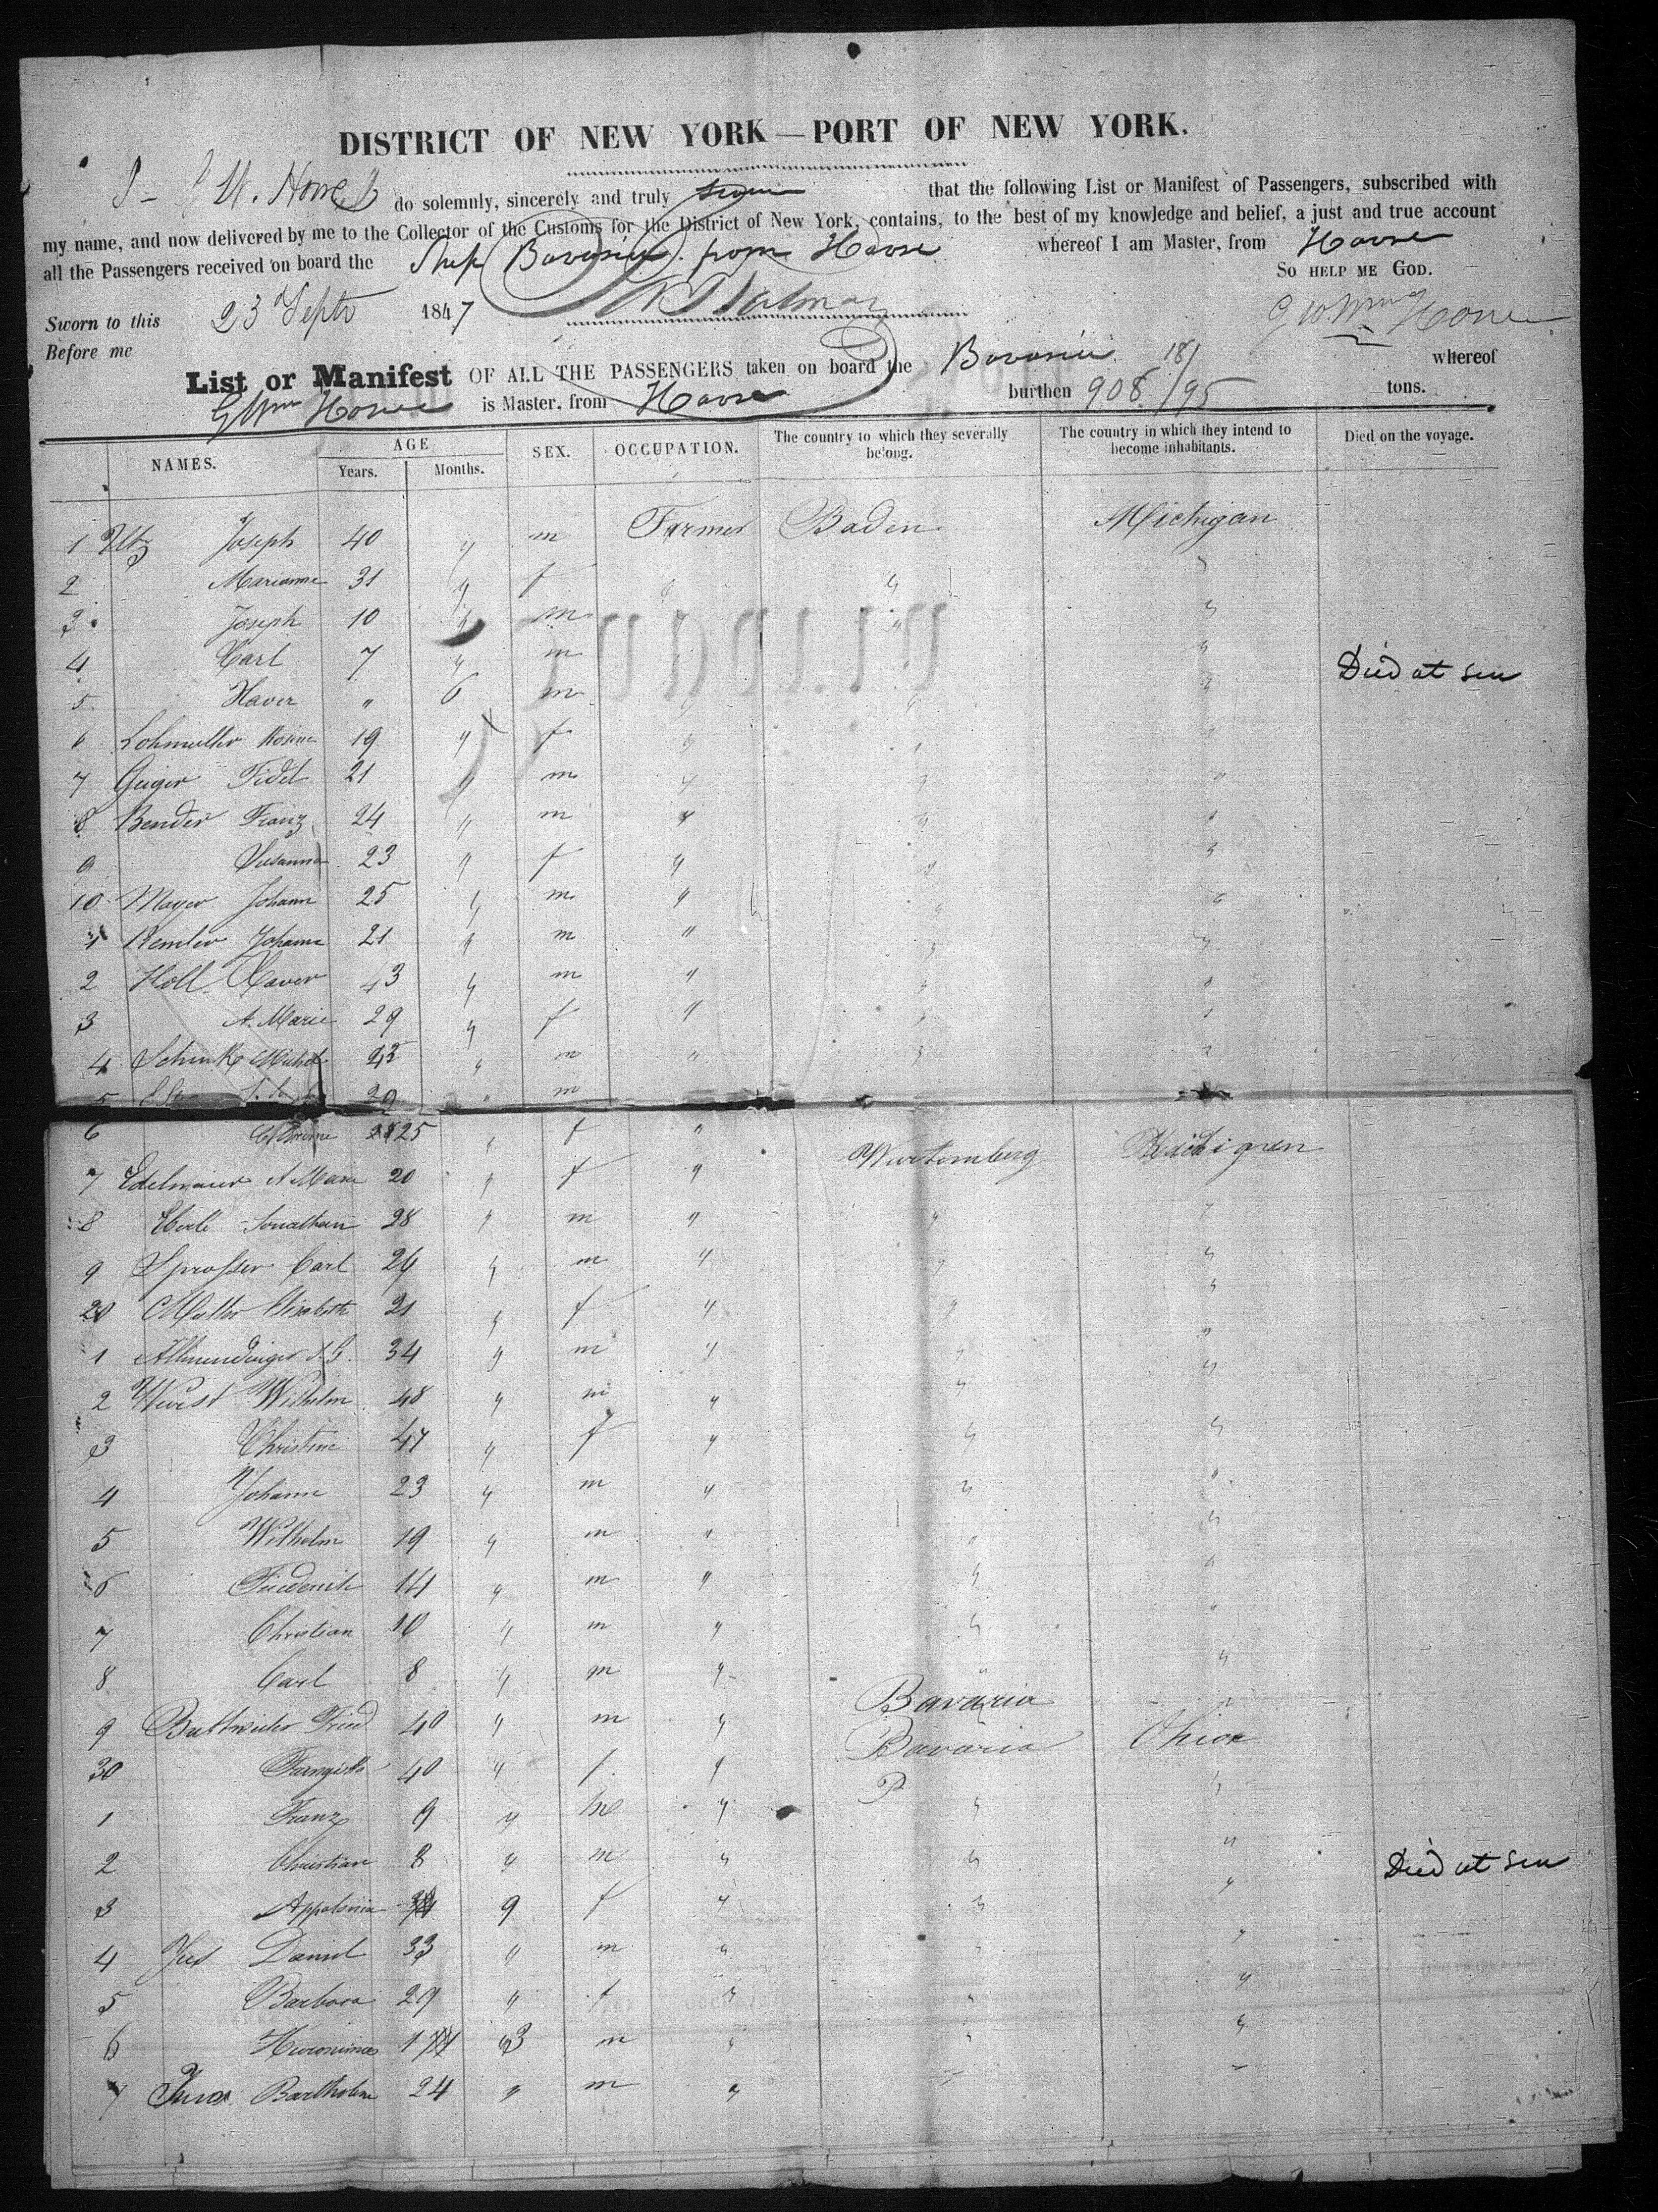 DISTRICT OF NEW YORK — PORT OF NEW YORK.
do solemnly, sincerely and truly swear that the following List or Manifest of Passengers, subscribed with
my name, and now delivered by me to the Collector of the Customs for the District of New York, contains, to the best of my knowledge and belief, a just and true account
all the Passengers received on board the Ship Bavaria from Havre whereof I am Master, from Havre
So HELP ME GOD.
Sworn to this 23 Septr 1847
Before me
List or Manifest OF ALL THE PASSENGERS taken on board the Bavaria whereof
is Master, from Havre burthen 908 /95 tons.
NAMES. AGE Years. Months. SEX. OCCUPATION. The country to which they severally belong. The country in which they intend to become inhabitants. Died on the voyage.
1 Utz Joseph 40 " m Farmer Baden Michigan
2 Marianne 31 " f " " "
3 Joseph 10 " m " "
4 Carl 7 " m "
5 Xaver " 6 m " " Died at sea
6 Lohmuller Rosine 19 " f " "
7 Geiger Fidel 21 " m " " "
8 Bender Franz 24 " m " " "
9 Susanna 23 " f " " "
10 Mayer Johann 25 " m " " "
1 Remler Johann 21 " m " " "
2 Holl Xaver 43 " m " " "
3 A. Marie 29 " f " " "
4 Schenk Michel 25 " m " " "
5 29 " m
6 25 " f "
7 Edelmaier A Marie 20 " f " Wurtemberg Michigan
8 Jonathan 28 " m " " "
9 Sprosser Carl 24 " m " " "
20 Muller Elisabeth 21 " f " " "
1 Allmendinger J. G. 34 " m " " "
2 Wurst Wilhelm 48 " m " " "
3 Christine 47 " f " " "
4 Johann 23 " m " " "
5 Wilhelm 19 " m " " "
6 Friederich 14 " m " " "
7 Christian 10 " m " " "
8 Carl 8 " m " " "
9 Fried 40 " m " Bavaria "
30 40 " f " Bavaria Ohio
1 Franz 9 " m " " "
2 Christian 8 " m " " "
3 Appolonia 9 f " " " Died at sea
4 Daniel 33 " m " " "
5 Barbara 29 " f " " "
6 Hieronimus 3 m " " "
7 Bartholom 24 " m " " "